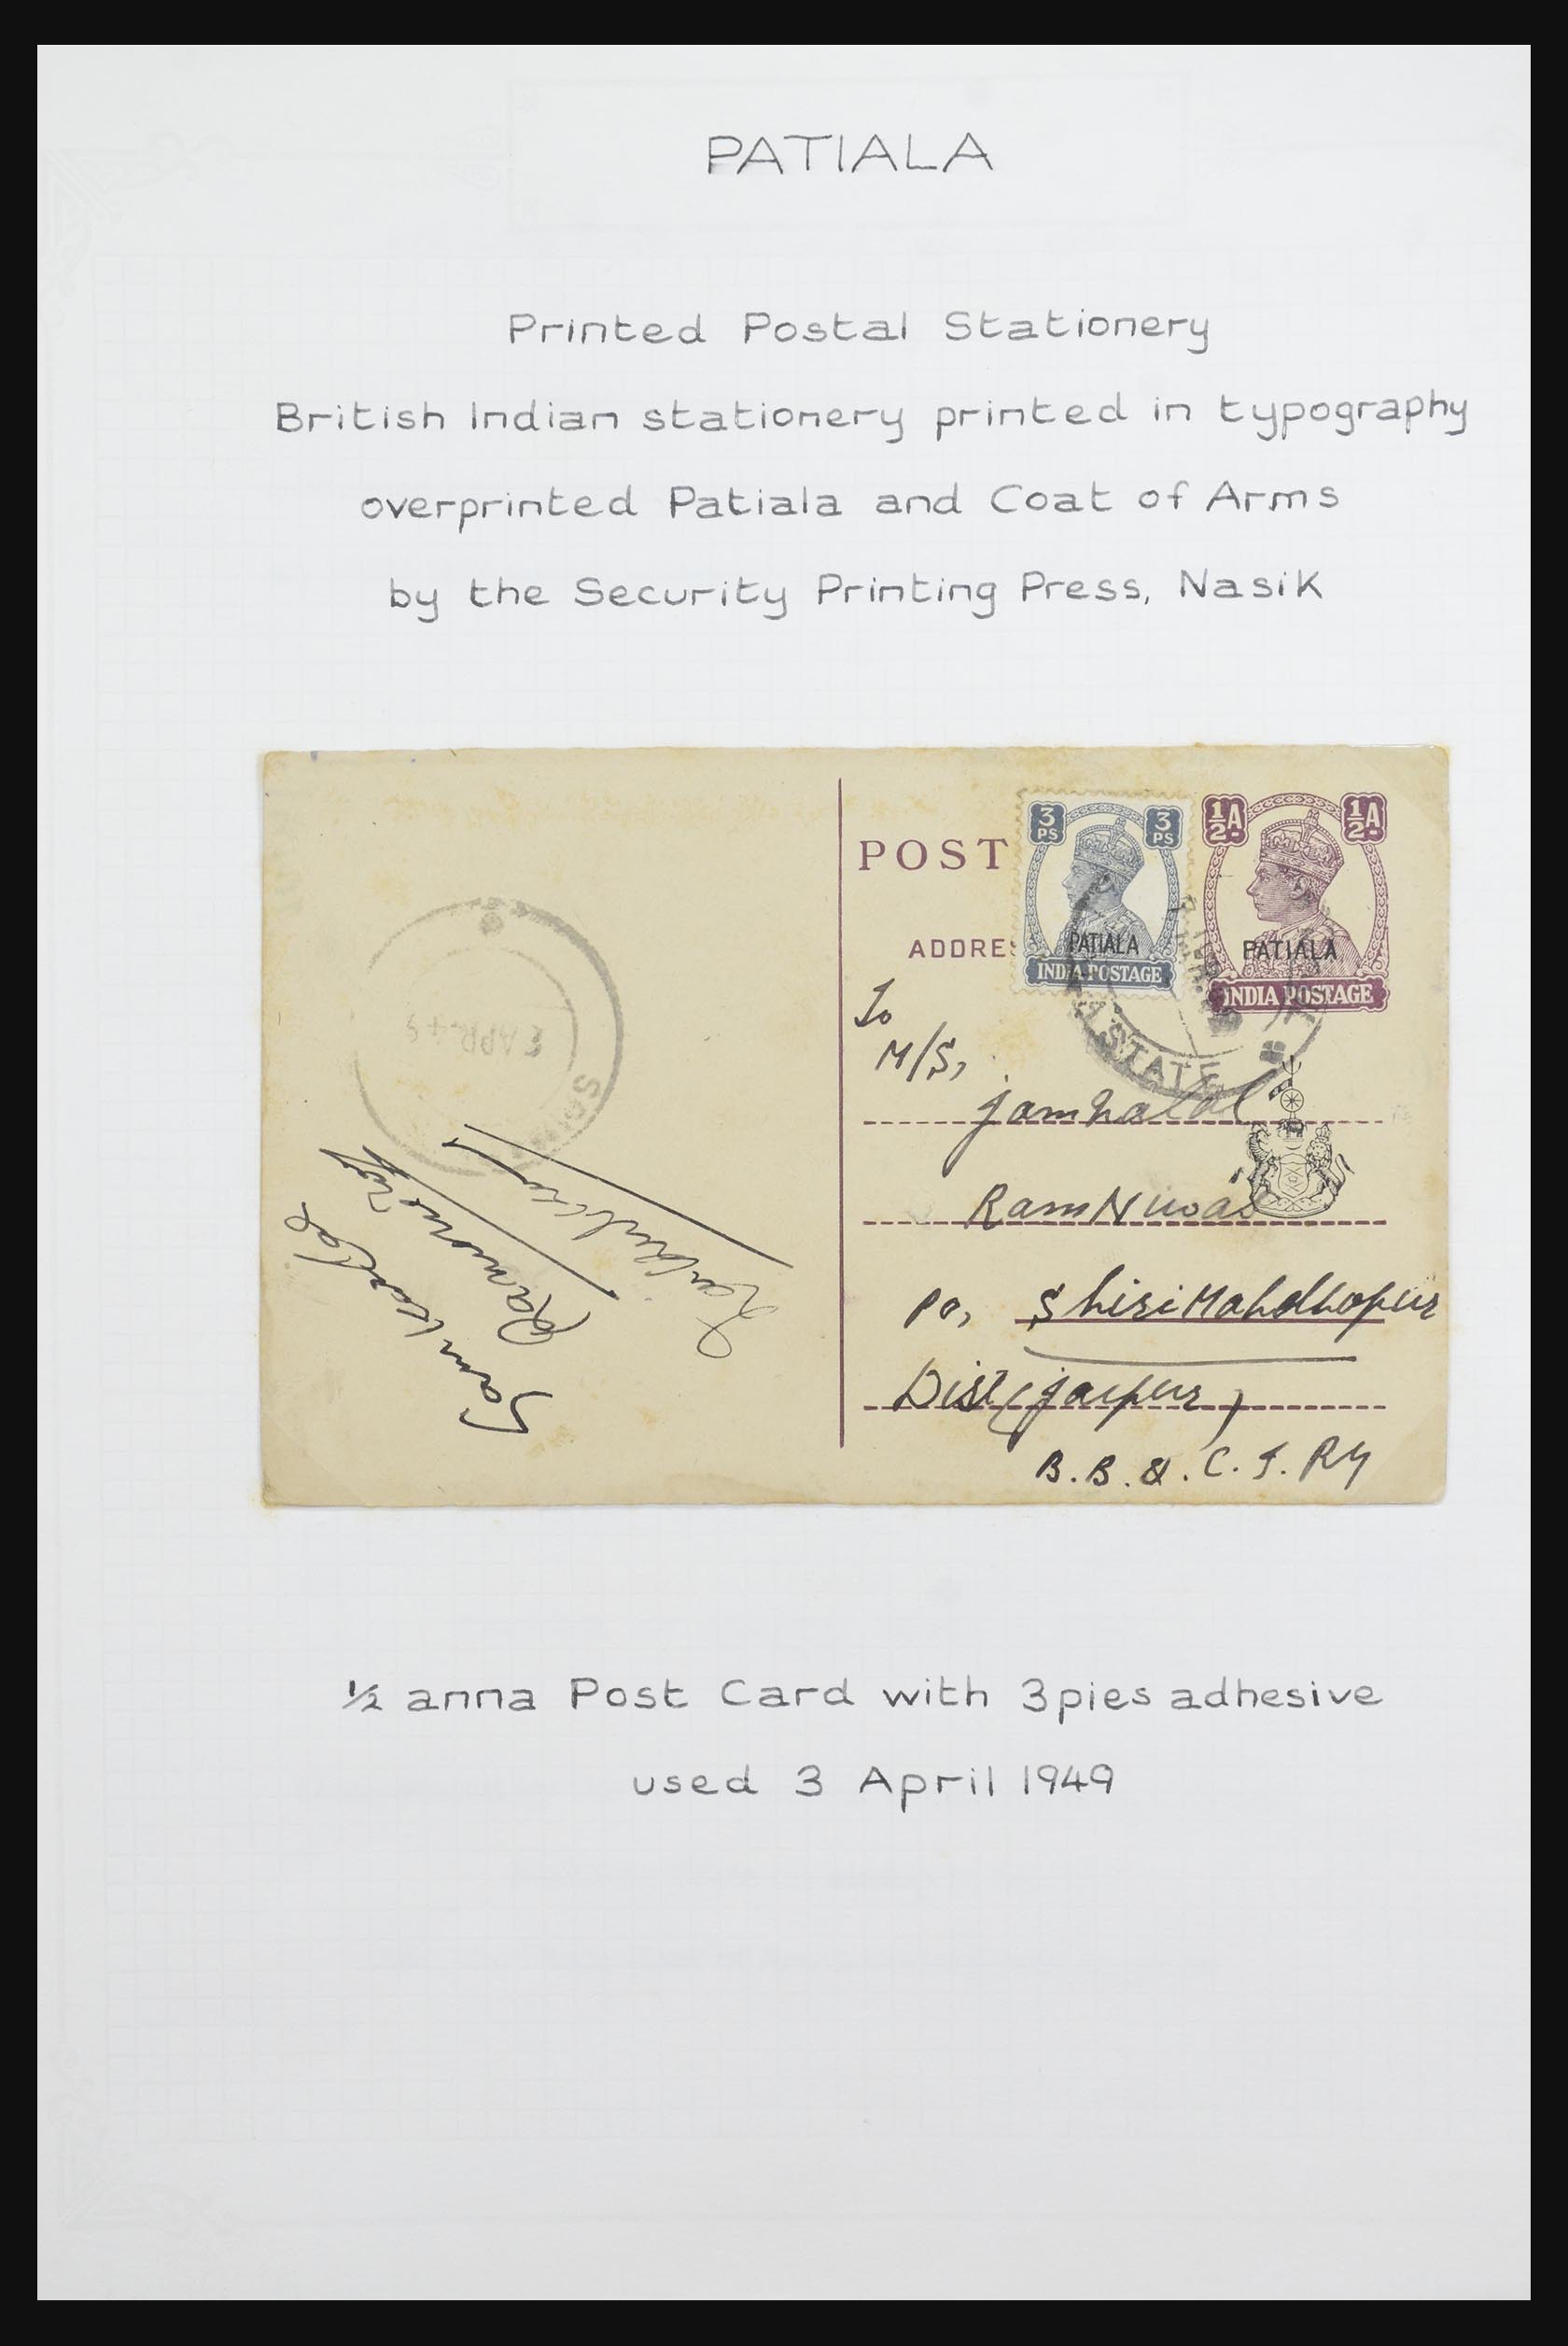 PATIALA
Printed Postal Stationery
British Indian stationery printed in typography
overprinted Patiala and Coat of Arms
by the Security Printing Press, Nasik
3 PS 3 PS
½A ½A
POST
PATIALA
PATIALA
ADDRES
INDIA POSTAGE
INDIA POSTAGE
STATE
APR 49
To
M/S,
Ram Niwas
Po, Shiri Mahdhopur
Dist (jaipur)
B. B. & . C. I. Ry
½ anna Post Card with 3 pies adhesive
used 3 April 1949